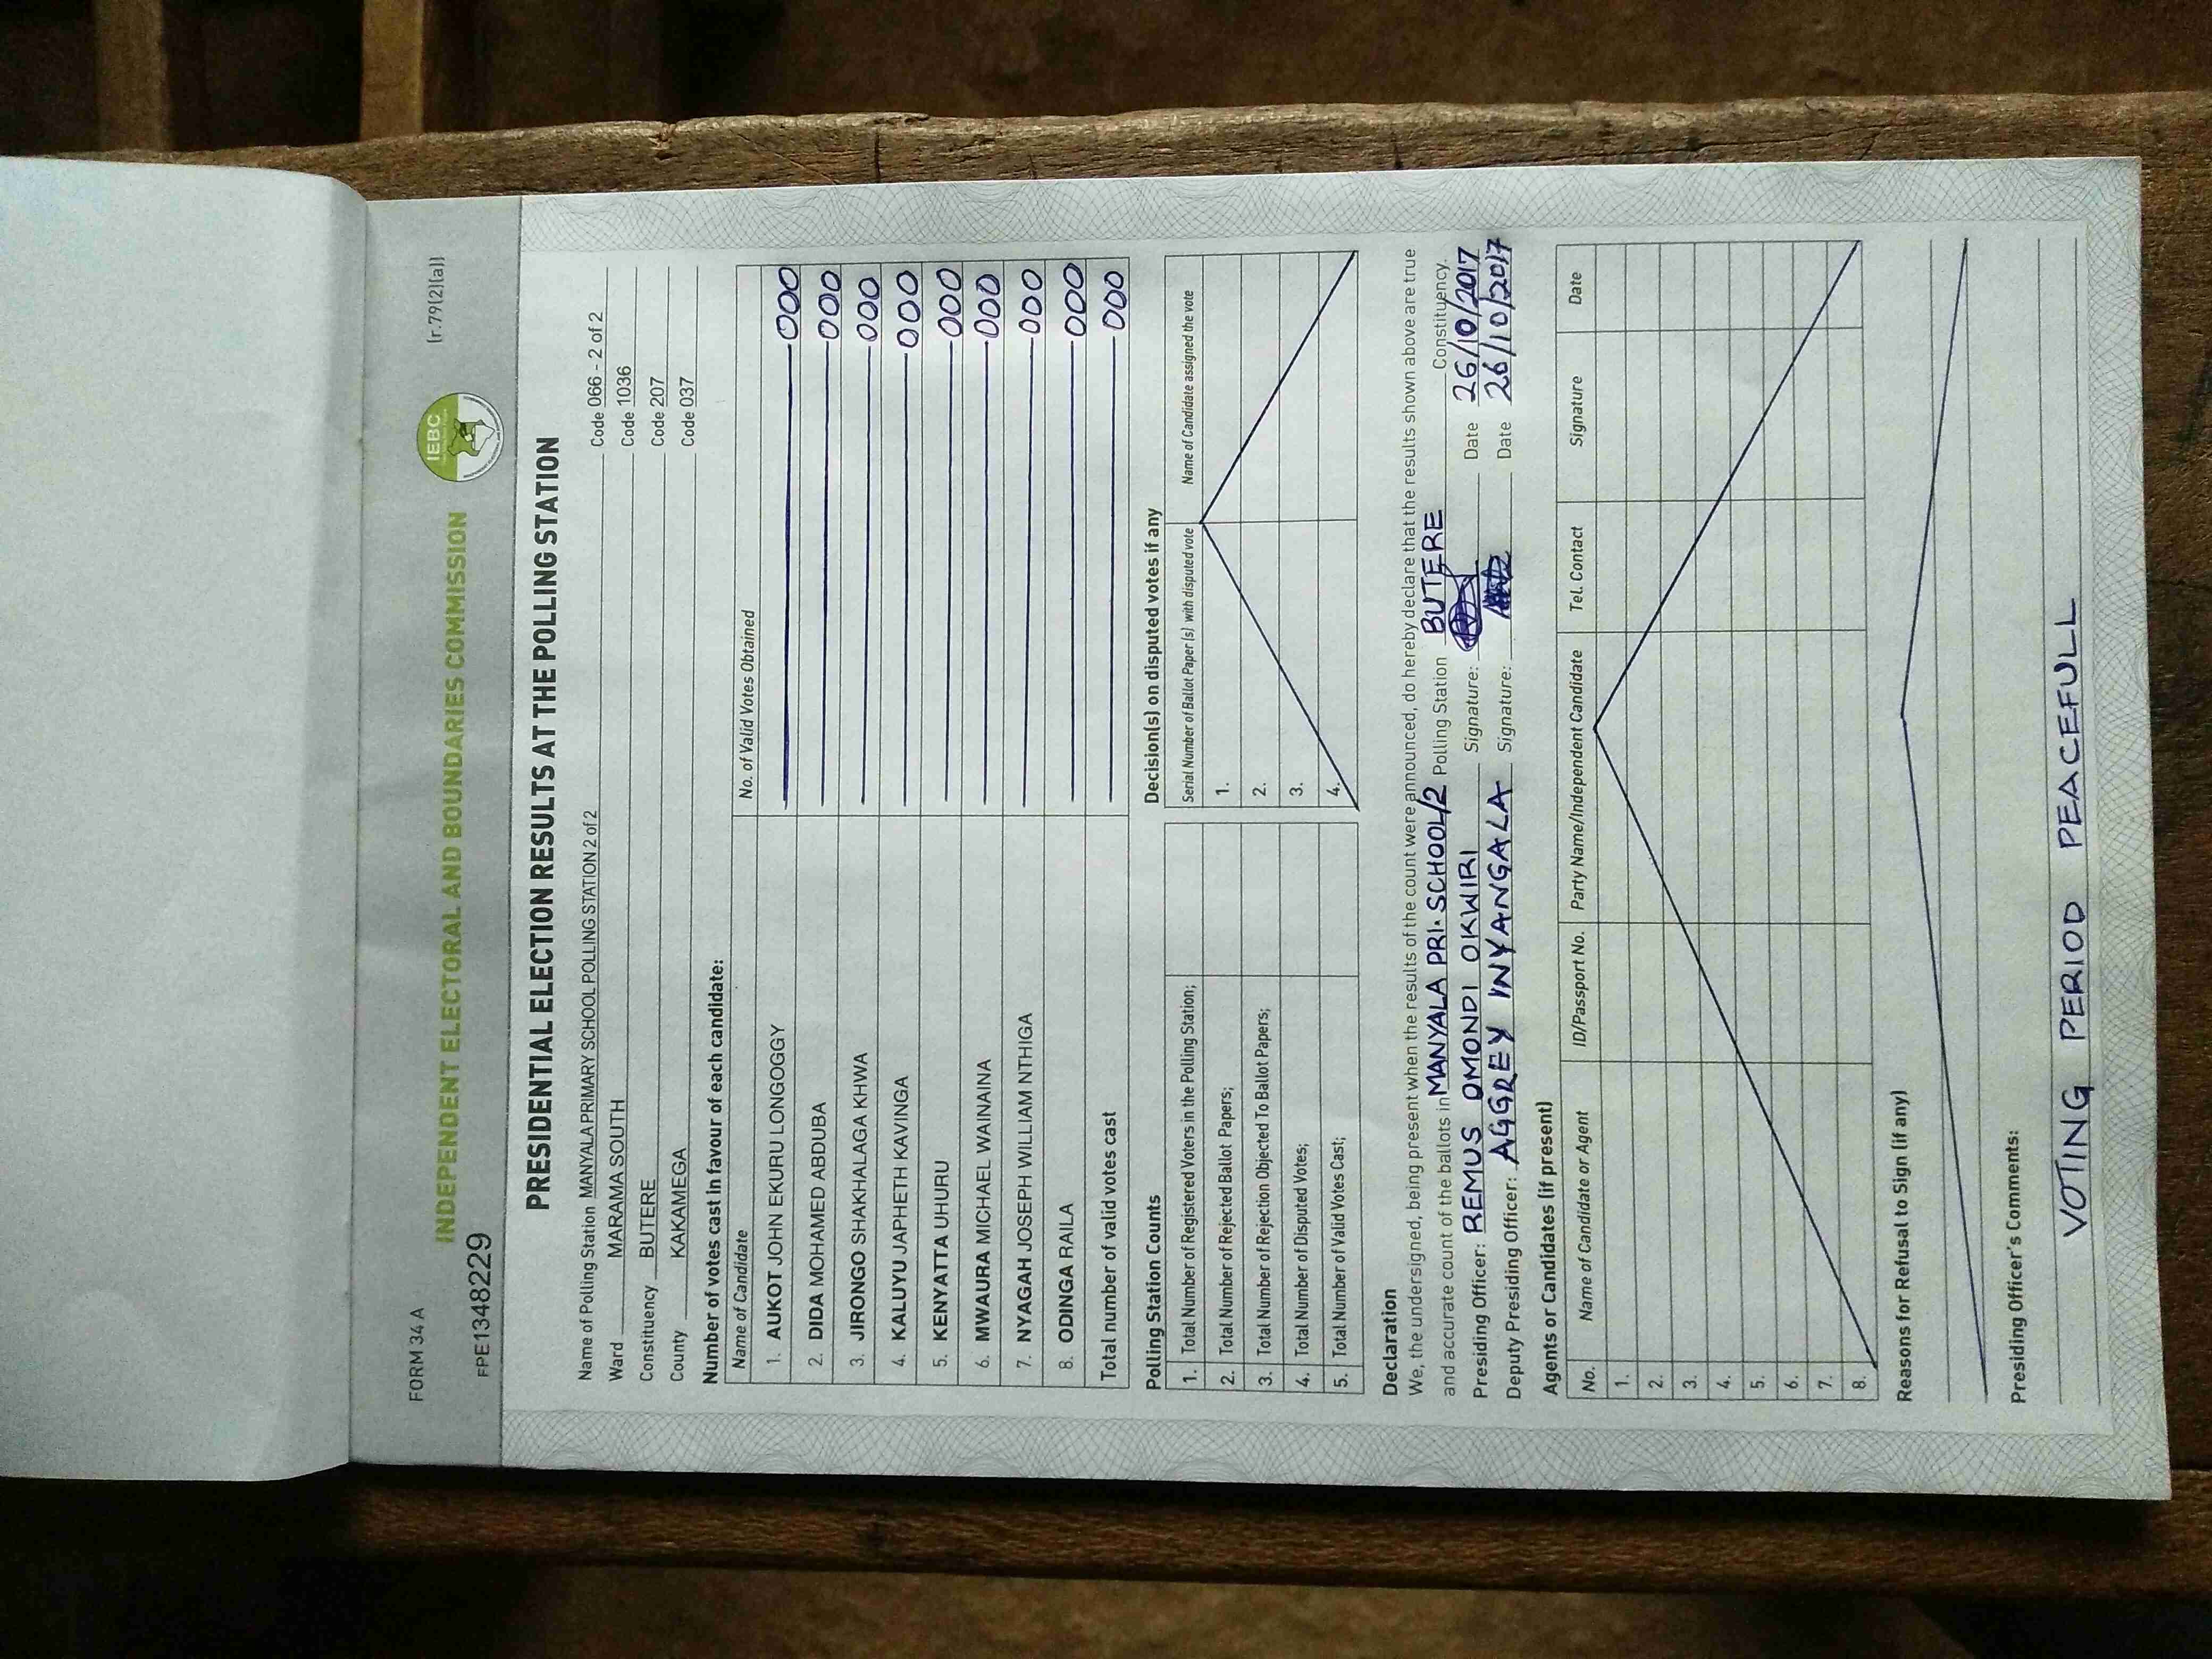 FORM 34 A
(r.79(2)(a))
INDEPENDENT ELECTORAL AND BOUNDARIES COMMISSION
IEBC
FPE1348229
PRESIDENTIAL ELECTION RESULTS AT THE POLLING STATION
Name of Polling Station MANYALA PRIMARY SCHOOL POLLING STATION 2 of 2 Code 066 - 2 of 2
Ward MARAMA SOUTH Code 1036
Constituency BUTERE Code 207
County KAKAMEGA Code 037
Number of votes cast in favour of each candidate:
Name of Candidate No. of Valid Votes Obtained
1. AUKOT JOHN EKURU LONGOGGY 000
2. DIDA MOHAMED ABDUBA 000
3. JIRONGO SHAKHALAGA KHWA 000
4. KALUYU JAPHETH KAVINGA 000
5. KENYATTA UHURU 000
6. MWAURA MICHAEL WAINAINA 000
7. NYAGAH JOSEPH WILLIAM NTHIGA 000
8. ODINGA RAILA 000
Total number of valid votes cast 000
Polling Station Counts
1. Total Number of Registered Voters in the Polling Station;
2. Total Number of Rejected Ballot Papers;
3. Total Number of Rejection Objected To Ballot Papers;
4. Total Number of Disputed Votes;
5. Total Number of Valid Votes Cast;
Decision(s) on disputed votes if any
Serial Number of Ballot Paper (s) with disputed vote Name of Candidate assigned the vote
1.
2.
3.
4.
Declaration
We, the undersigned, being present when the results of the count were announced, do hereby declare that the results shown above are true
and accurate count of the ballots in MANYALA PRI. SCHOOL/2 Polling Station BUTERE Constituency.
Presiding Officer: REMUS OMONDI OKWIRI Signature: Date 26/10/2017
Deputy Presiding Officer: AGGREY INYANGALA Signature: Date 26/10/2017
Agents or Candidates (if present)
No. Name of Candidate or Agent ID/Passport No. Party Name/Independent Candidate Tel. Contact Signature Date
1.
2.
3.
4.
5.
6.
7.
8.
Reasons for Refusal to Sign (if any)
Presiding Officer's Comments:
VOTING PERIOD PEACEFULL